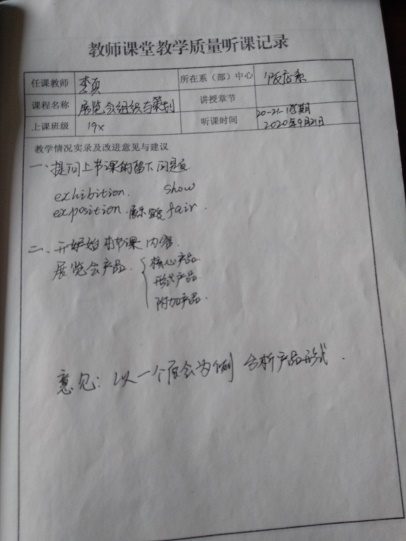 教师课堂教学质量听课记录
任课教师 李 所在系(部)中心 系
课程名称 展览会组织与策划 讲授章节
上课班级 19 听课时间 20-21 学期
2020年9月21日
教学情况实录及改进意见与建议
一、提问上节课的留下问题
exhibition. show
exposition. 展 fair.
二、开始本节课内容
展览会产品 核心产品
形式产品
附加产品
意见:以一个展会为例 分析产品形式.